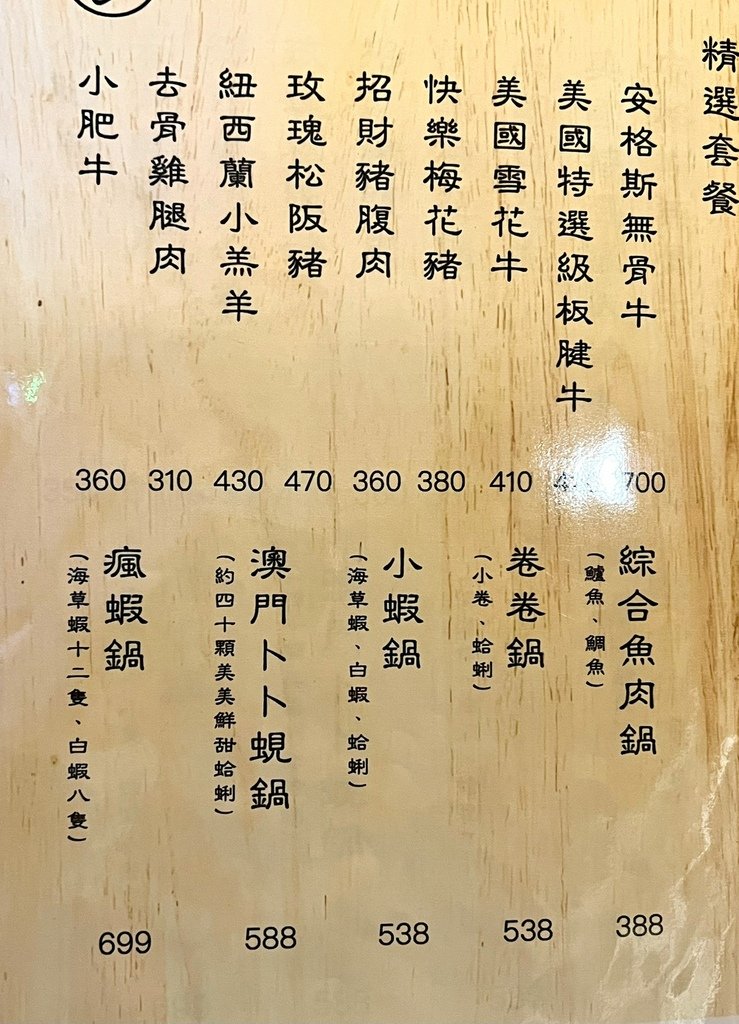 精選套餐
安格斯無骨牛
700
美國特選級板腱牛
美國雪花牛
410
快樂梅花豬
380
招財豬腹肉
360
玫瑰松阪豬
470
紐西蘭小羔羊
430
去骨雞腿肉
310
小肥牛
360
綜合魚肉鍋
(鱸魚、鯛魚)
388
卷卷鍋
(小卷、蛤蜊)
538
小蝦鍋
(海草蝦、白蝦、蛤蜊)
538
澳門卜卜蜆鍋
(約四十顆美美鮮甜蛤蜊)
588
瘋蝦鍋
(海草蝦十二隻、白蝦八隻)
699